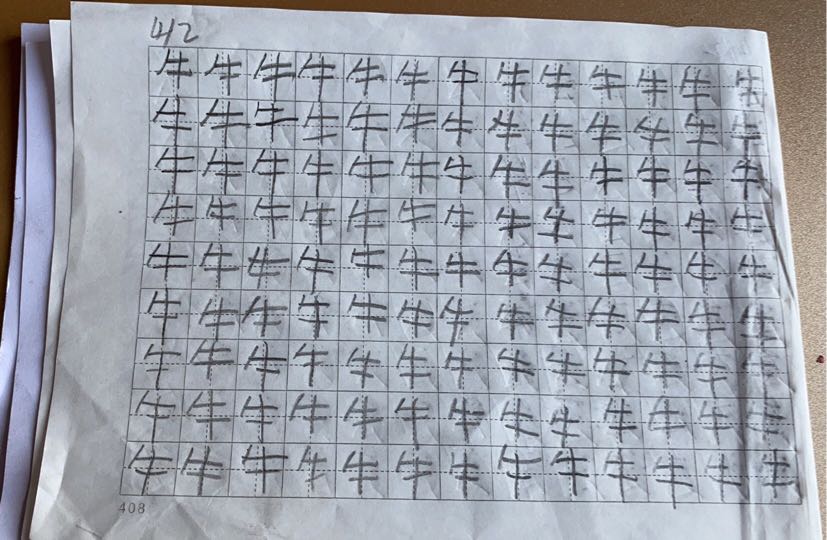 4/2
牛牛牛牛牛牛牛牛牛牛牛牛牛
牛牛牛牛牛牛牛牛牛牛牛牛牛
牛牛牛牛牛牛牛牛牛牛牛牛牛
牛牛牛牛牛牛牛牛牛牛牛牛牛
牛牛牛牛牛牛牛牛牛牛牛牛牛
牛牛牛牛牛牛牛牛牛牛牛牛牛
牛牛牛牛牛牛牛牛牛牛牛牛牛
牛牛牛牛牛牛牛牛牛牛牛牛牛
牛牛牛牛牛牛牛牛牛牛牛牛牛
408